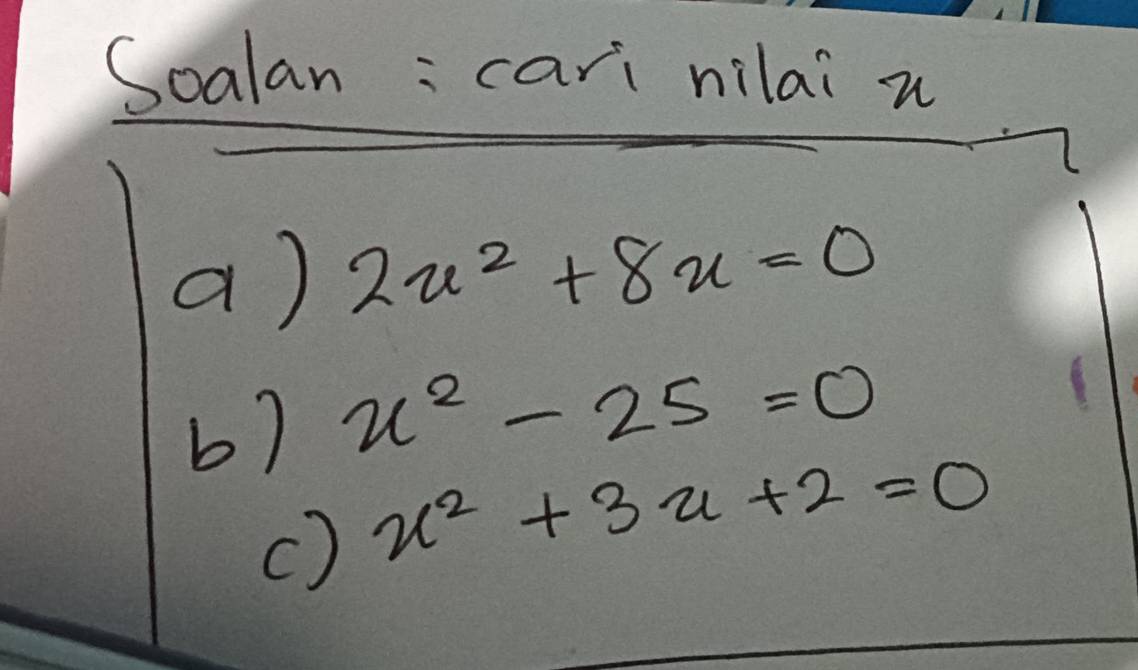 Soalan : cari nilai x
a) 2x² + 8x = 0
b) x² - 25 = 0
c) x² + 3x + 2 = 0